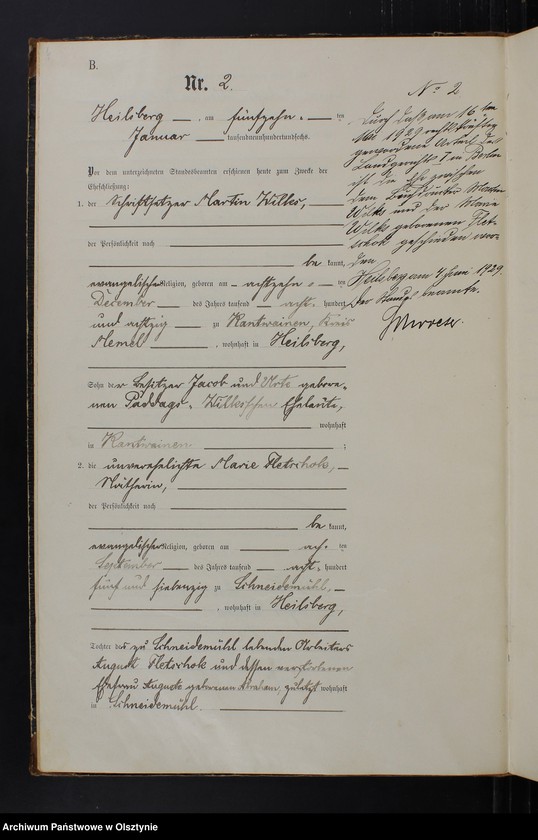 B.
Nr. 2.
Heilsberg, am fünfzehn ten
Januar tausendneunhundertundsechs.
Vor dem unterzeichneten Standesbeamten erschienen heute zum Zwecke der
Eheschließung:
1. der Schriftsetzer Martin Wilks,
der Persönlichkeit nach
be kannt,
evangelischer Religion, geboren am achtzehn ten
Dezember des Jahres tausend acht hundert
und achtzig zu Kantwainen, Kreis
Memel, wohnhaft in Heilsberg,
Sohn der Besitzer Jacob und Urte gebore-
nen Paddags - Wilks'schen Eheleute,
wohnhaft
in Kantwainen ;
2. die unverehelichte Marie Fletschok,
Nätherin,
der Persönlichkeit nach
be kannt,
evangelischer Religion, geboren am ach- ten
September des Jahres tausend acht hundert
fünf und siebenzig zu Schneidemühl,
, wohnhaft in Heilsberg,
Tochter des zu Schneidemühl lebenden Arbeiters
August Fletschok und dessen verstorbenen
Ehefrau Auguste geborenen Abraham, zuletzt wohnhaft
in Schneidemühl.
No 2
Durch das am 16 ten
Mai 1929 rechtskräftig
gewordene Urteil des
Landgerichts I in Berlin
ist die Ehe zwischen
dem Martin
Wilks und der Marie
Wilks geborenen Flet-
schok geschieden wor-
den
Heilsberg am 4 Juni 1929.
Der Standesbeamte.
Archiwum Państwowe w Olsztynie